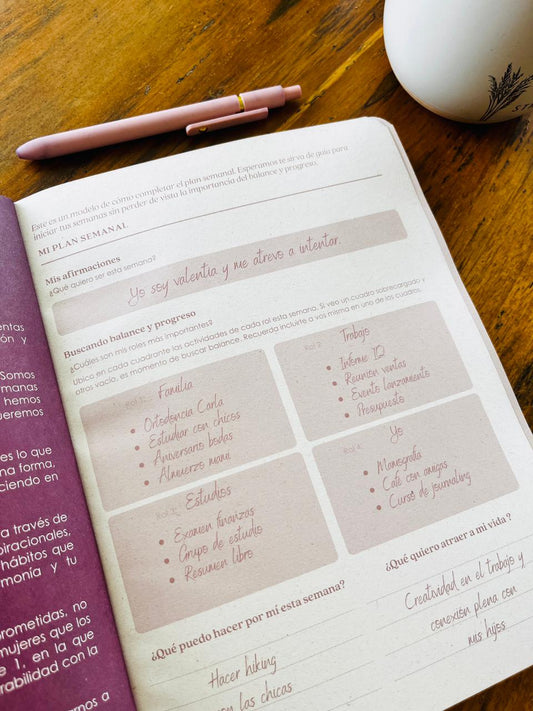 Este es un modelo de cómo completar el plan semanal. Esperamos te sirva de guía para
iniciar tus semanas sin perder de vista la importancia del balance y progreso.
MI PLAN SEMANAL
Mis afirmaciones
¿Qué quiero ser esta semana?
Yo soy valentia y me atrevo a intentar.
Buscando balance y progreso
¿Cuáles son mis roles más importantes?
Ubica en cada cuadrante las actividades de cada rol esta semana. Si veo un cuadro sobrecargado y
otros vacía, es momento de buscar balance. Recuerda incluirte a vos misma en uno de los cuadros.
Rol 1: Familia
Ortodoncia Carla
Estudiar con chicos
Aniversario bodas
Almuerzo mami
Rol 2: Trabajo
Informe 1Q
Reunion ventas
Evento lanzamiento
Presupuesto
Rol 3: Estudios
Examen finanzas
Grupo de estudio
Resumen libro
Rol 4: Yo
Mamografia
Café con amigas
Curso de journaling
¿Qué puedo hacer por mí esta semana?
Hacer hiking
con las chicas
¿Qué quiero atraer a mi vida?
Creatividad en el trabajo y
conexión plena con
mis hijos
entas
ón y
Somos
manas
hemos
ueremos
es lo que
na forma,
ciendo en
a través de
piracionales,
hábitos que
monía y tu
prometidas, no
mujeres que los
e 1, en la que
rabilidad con la
mos a